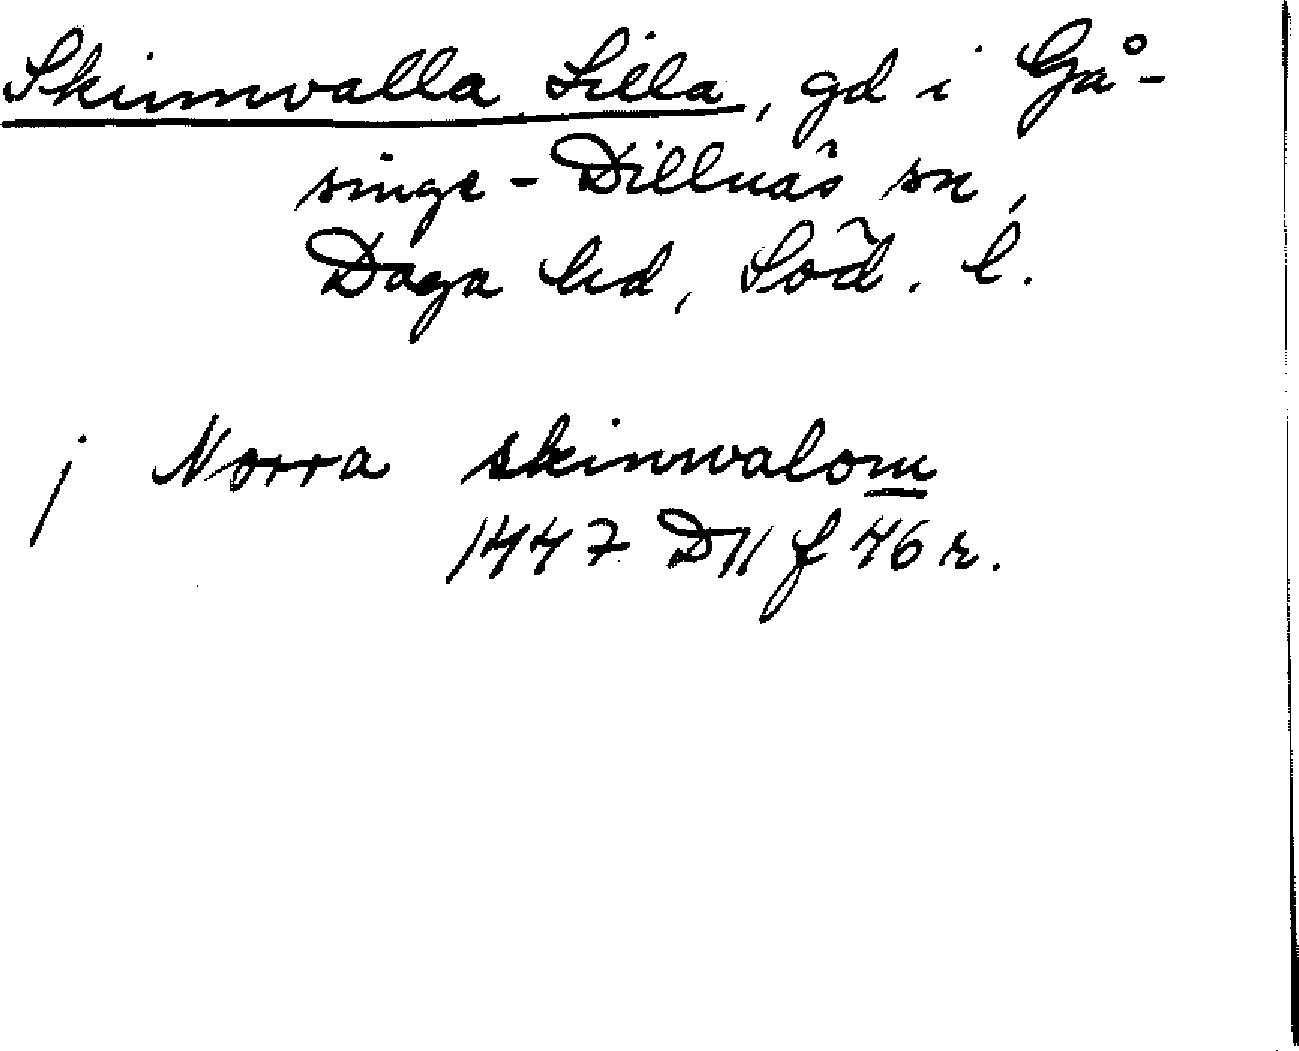 Skinnvalla Lilla, gd i Gå-
singe-Dillnäs sn,
Daga hd, Söd. l.
j Norra skinwalom
1447 D11 f 46 r.